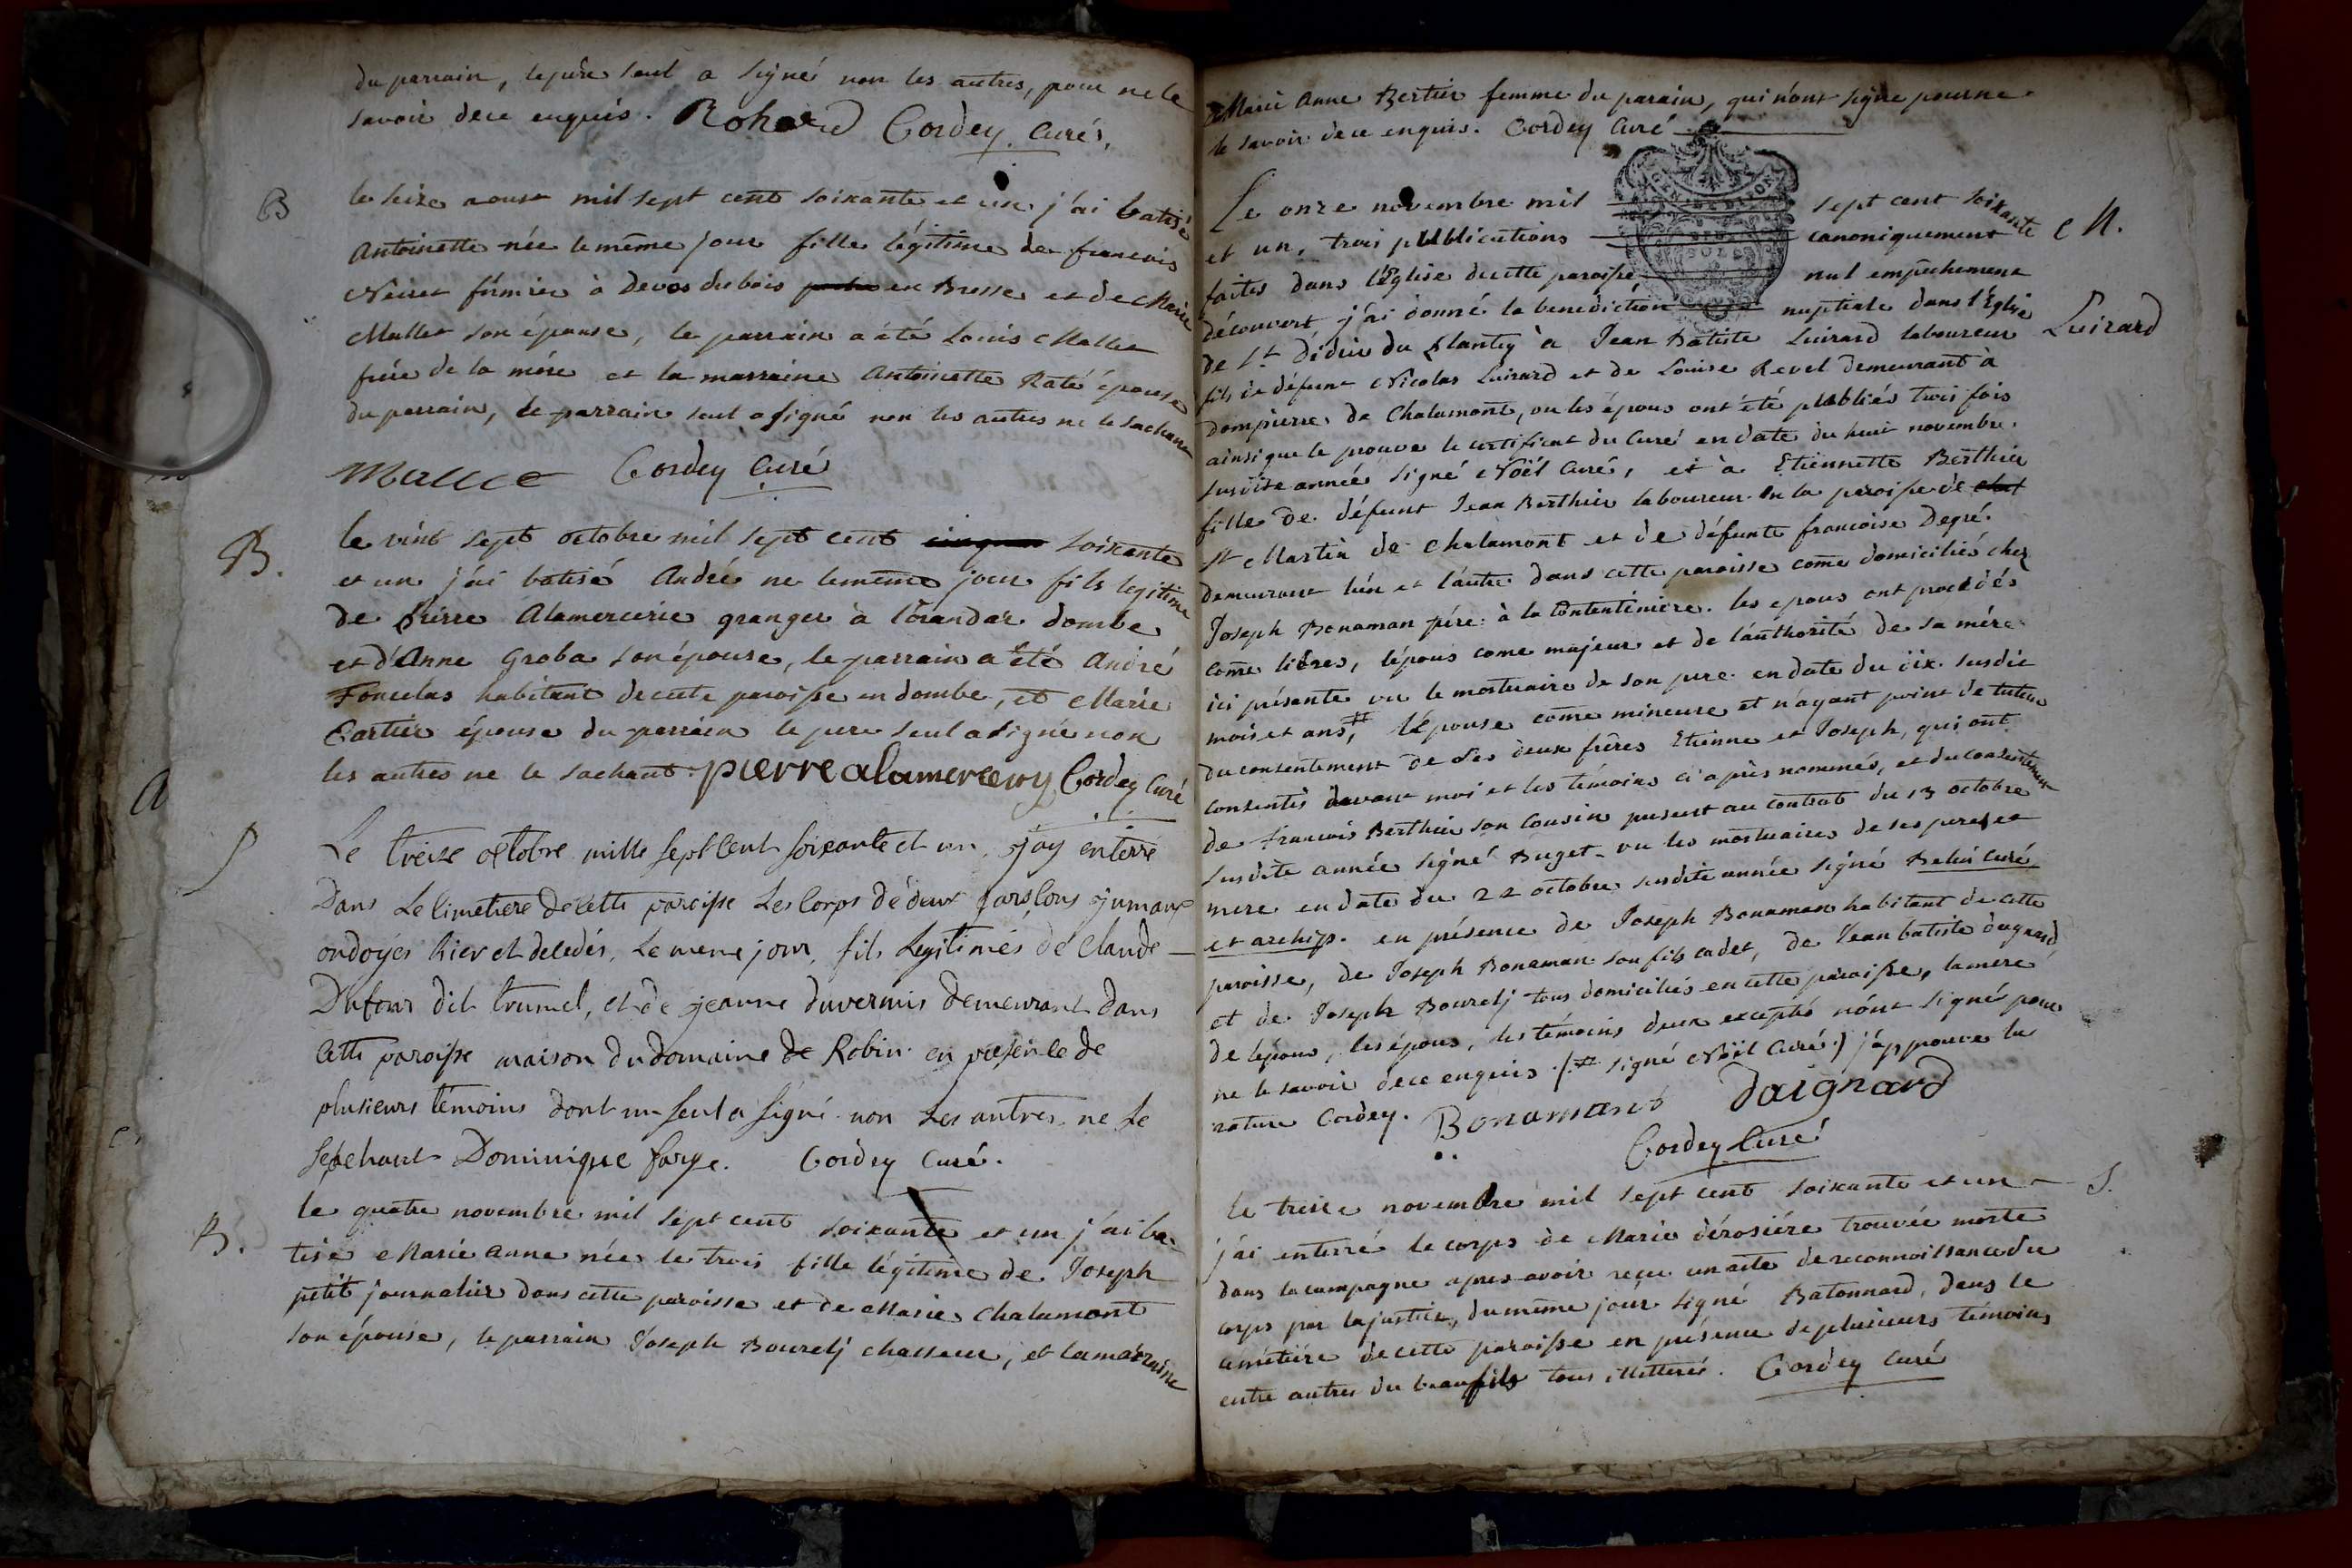 du parrain, le pere seul a signé non les autres, pour ne le
savoir de ce enquis. Rohard Cordey Curé,
B
le seize aoust mil sept cent soixante et un j'ai batisé
Antoinette née le même jour fille légitime de francois
Neiret fermier à devos du bois en Bresse et de Marie
Mallet son épouse, le parrain a été Louis Mallet
frére de la mére et la marraine Antoinette Raté épouse
du parrain, le parrain seul a signé non les autres ne le sachant
Mallet Cordey Curé
B.
le vint sept octobre mil sept cent soixante
et un j'ai batisé André ne le meme jour fils legitime
de Pierre Alamercerie granger à dombe
et d'Anne Groba son épouse, le parrain a été André
Foncelas habitant de cette paroisse en dombe, et Marie
Cartier épouse du parrain le pere seul a signé non
les autres ne le sachant. pierre alamercery Cordey Curé
a
S
Le treize octobre mille sept cent soixante et un j'ay enterré
Dans Le Cimetiere de cette paroisse Les Corps de deux garscons jumaux
ondoyés hier et decedés, Le meme jour, fils Legitimes de Claude
Dufour dit trumel, et de jeanne duvernis demeurant dans
Cette paroisse maison du domaine de Robin en présence de
plusieurs témoins dont un seul a signé non Les autres ne le
sachant Dominique farge. Cordey Curé.
B.
le quatre novembre mil sept cent soixante et un j'ai ba-
tisé Marie Anne née le trois fille légitime de Joseph
petit journalier dans cette paroisse et de Marie Chalamont
son épouse, le parrain Joseph Bourdj chasseur, et la marraine
Marie Anne Bertier femme du parain, qui n'ont signe pour ne
le savoir de ce enquis. Cordey Curé
Le onze novembre mil sept cent soixante
et un, trois publications canoniquement
faites dans l'Eglise de cette paroisse, nul empêchement
découvert j'ai donné la benediction nuptiale dans l'Église
M.
Luirard
de St. Didier du Plantey à Jean Batiste Luirard laboureur
fils de défunt Nicolas Luirard et de Louise Revel demeurant à
dompierre de Chalamont, ou les épous ont été publiés trois fois
ainsi que le prouve le certificat du Curé en date du huit novembre.
susdite année signé Noël Curé, et à Etiennette Berthier
fille de défunt Jean Berthier laboureur en la paroisse de
St Martin de Chalamont et de défunte francoise Degré.
demeurant l'un et l'autre dans cette paroisse come domiciliés chez
Joseph Bonaman pére à la . les epous ont procédés
come libres, l'épous come majeur et de l'authorité de sa mére
ici présente vu le mortuaire de son pere en date du dix susdit
mois et ans,# l'épouse come mineure et n'ayant point de tuteur
du consentement de ses deux fréres Etienne et Joseph, qui ont
consentis devant moi et les témoins ci après nommés, et du consentement
de francois Berthier son Cousin présent au contrat du 13 octobre
susdite année signé Buget. vu les mortuaires de ses pere et
mere en date du 22 octobre susdite année signé Belin Curé
et archip. en présence de Joseph Bonaman habitant de cette
paroisse, de Joseph Bonaman son fils cadet, de Jean batiste daignard
et de Joseph Bourdj tous domiciliés en cette paroisse, la mere
de l'epous, les épous, les témoins deux exceptés n'ont signé pour
ne le savoir de ce enquis. (# signé Noël Curé.) j'approuve la
rature Cordey. Bonamant daignard
Cordey Curé
S.
Le treize novembre mil sept cent soixante et un
j'ai enterré le corps de Marie dérosiére trouvée morte
dans la campagne apres avoir reçu un acte de reconnoissance du
corps par la justice, du même jour signé Batonnard, dans le
cimetiére de cette paroisse en présence de plusieurs témoins
entre autres du beaufils tous illitterés. Cordey Curé